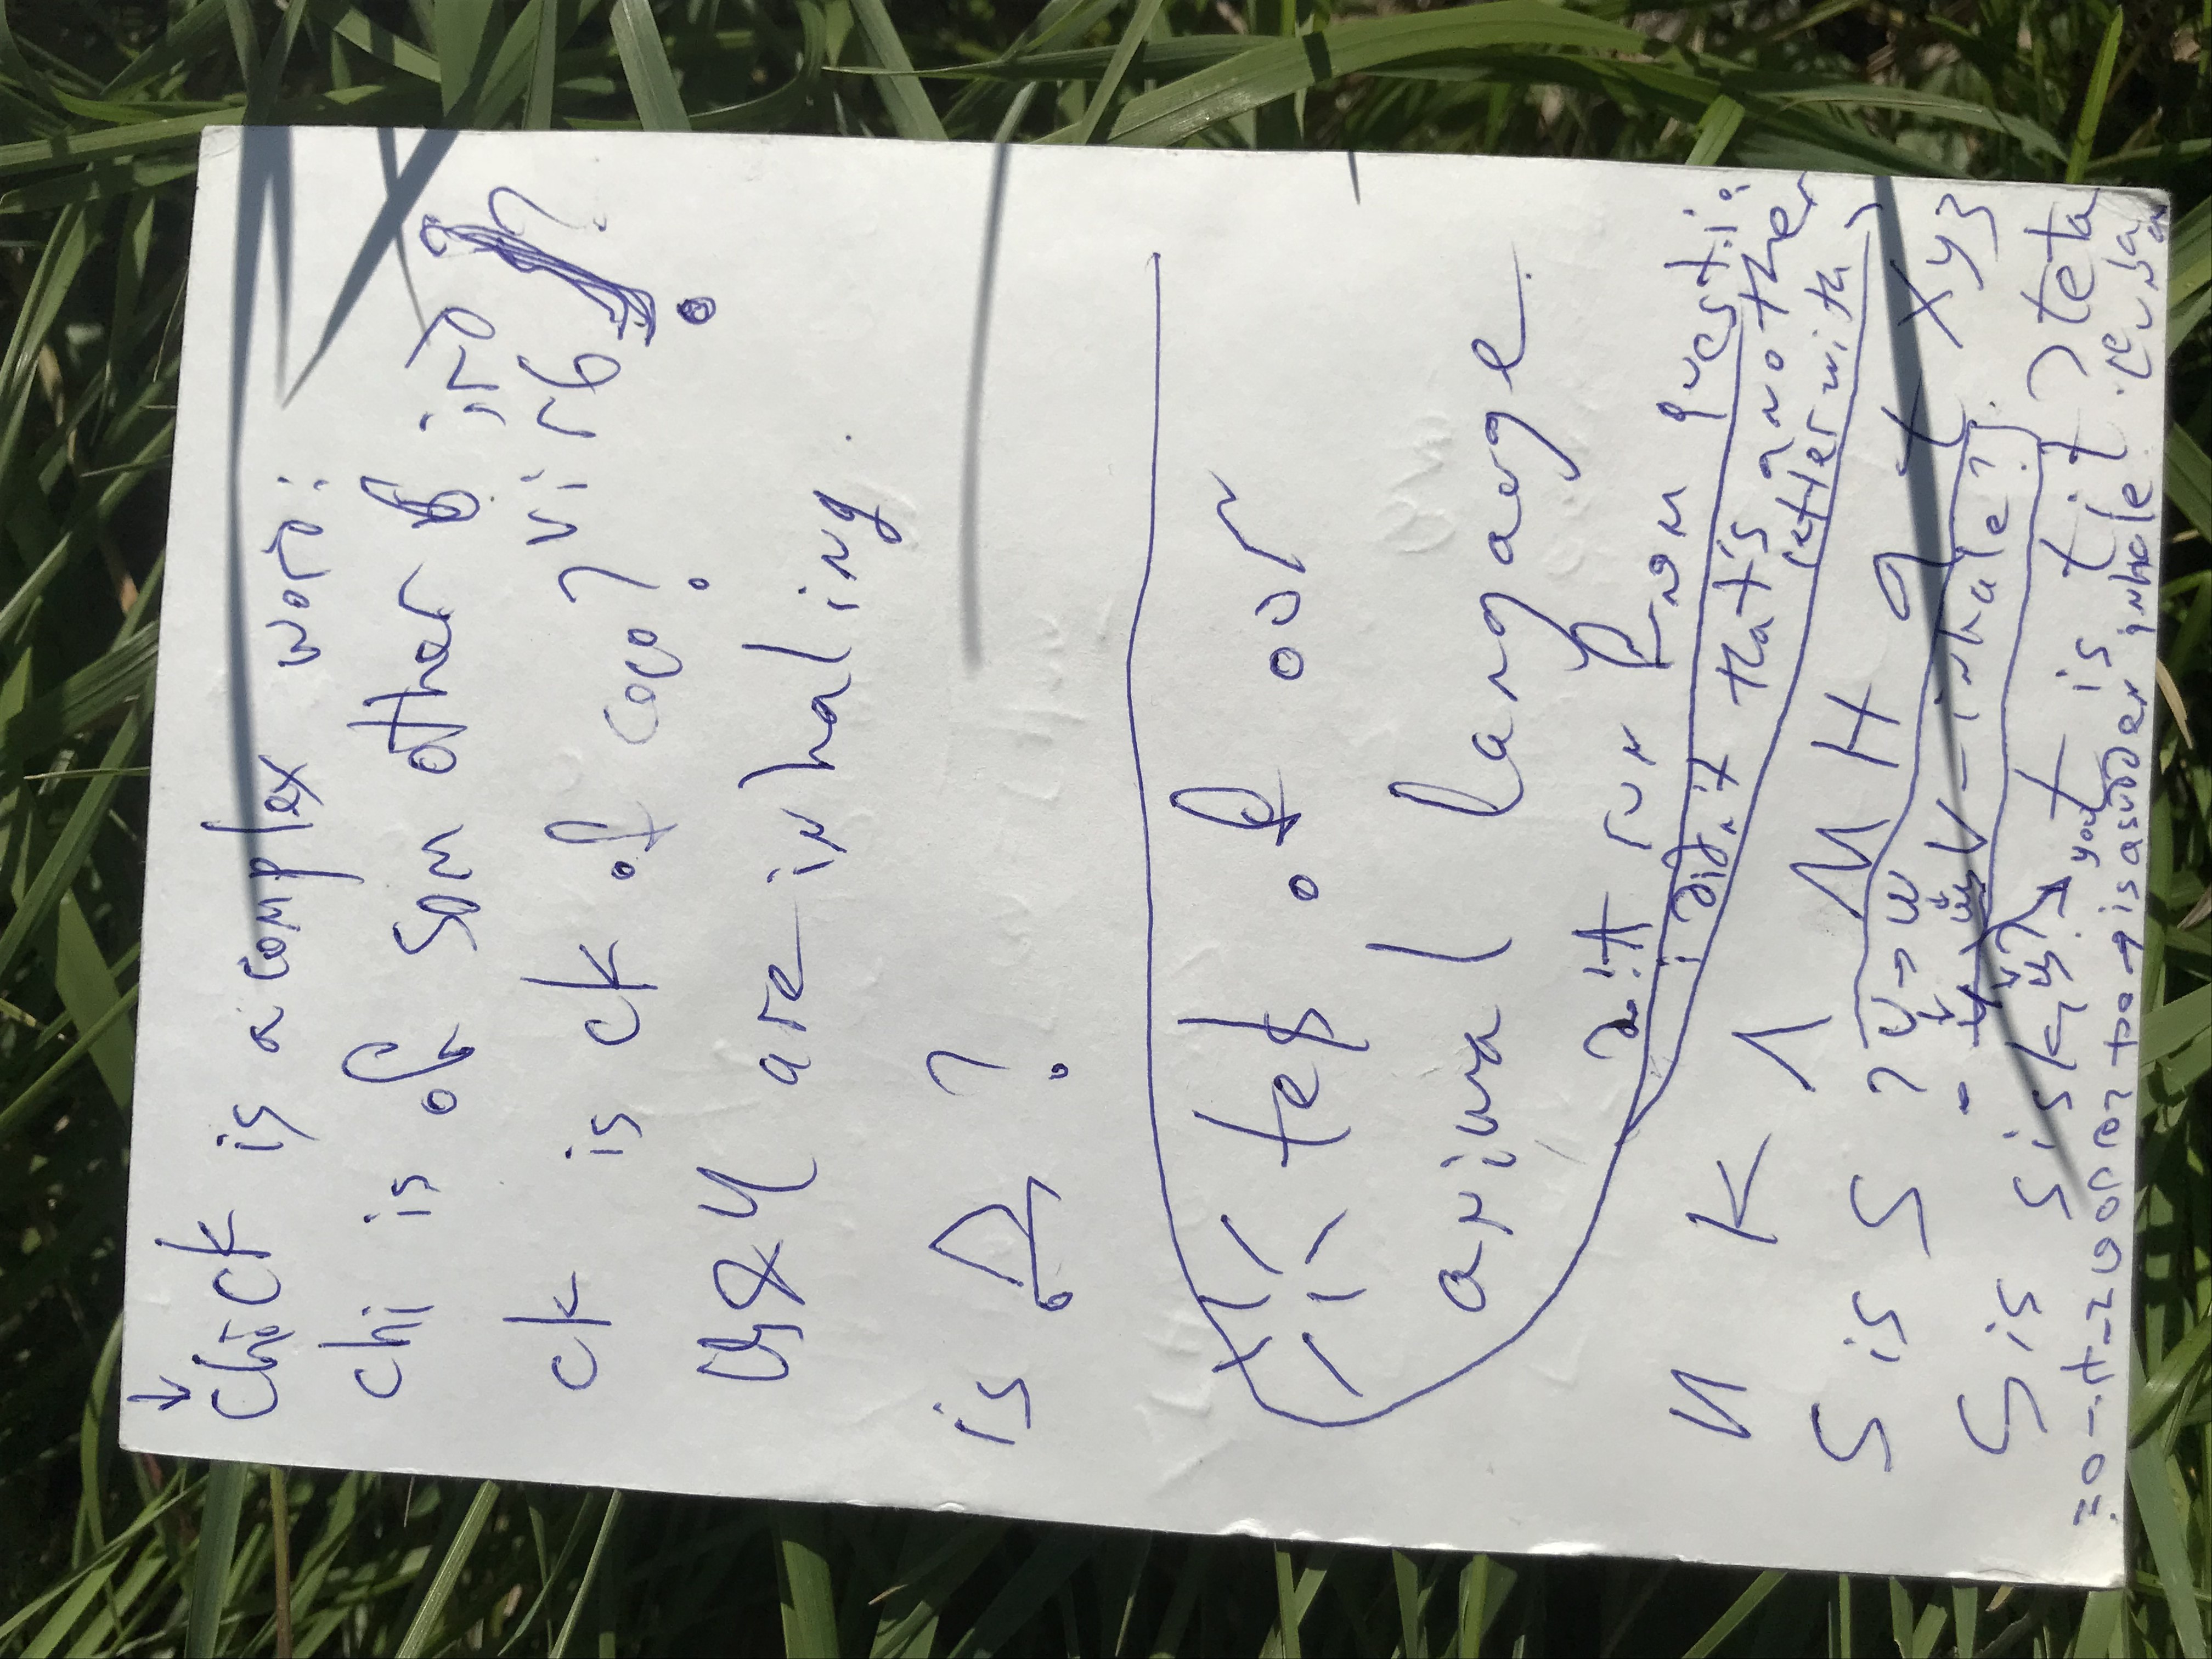 ↓
chick is a complex word:
chi is of som other bird
virb ?
ck is ck of coco?
& Ч are inhaling.
is ?
of our
animal langauge.
run from questi
i didn't that's another
letter with
И K Λ M H q t x y z
S is S ?
V - inhale?
S is sisk,
you
t is tit ? teta
is a sudden inhale.